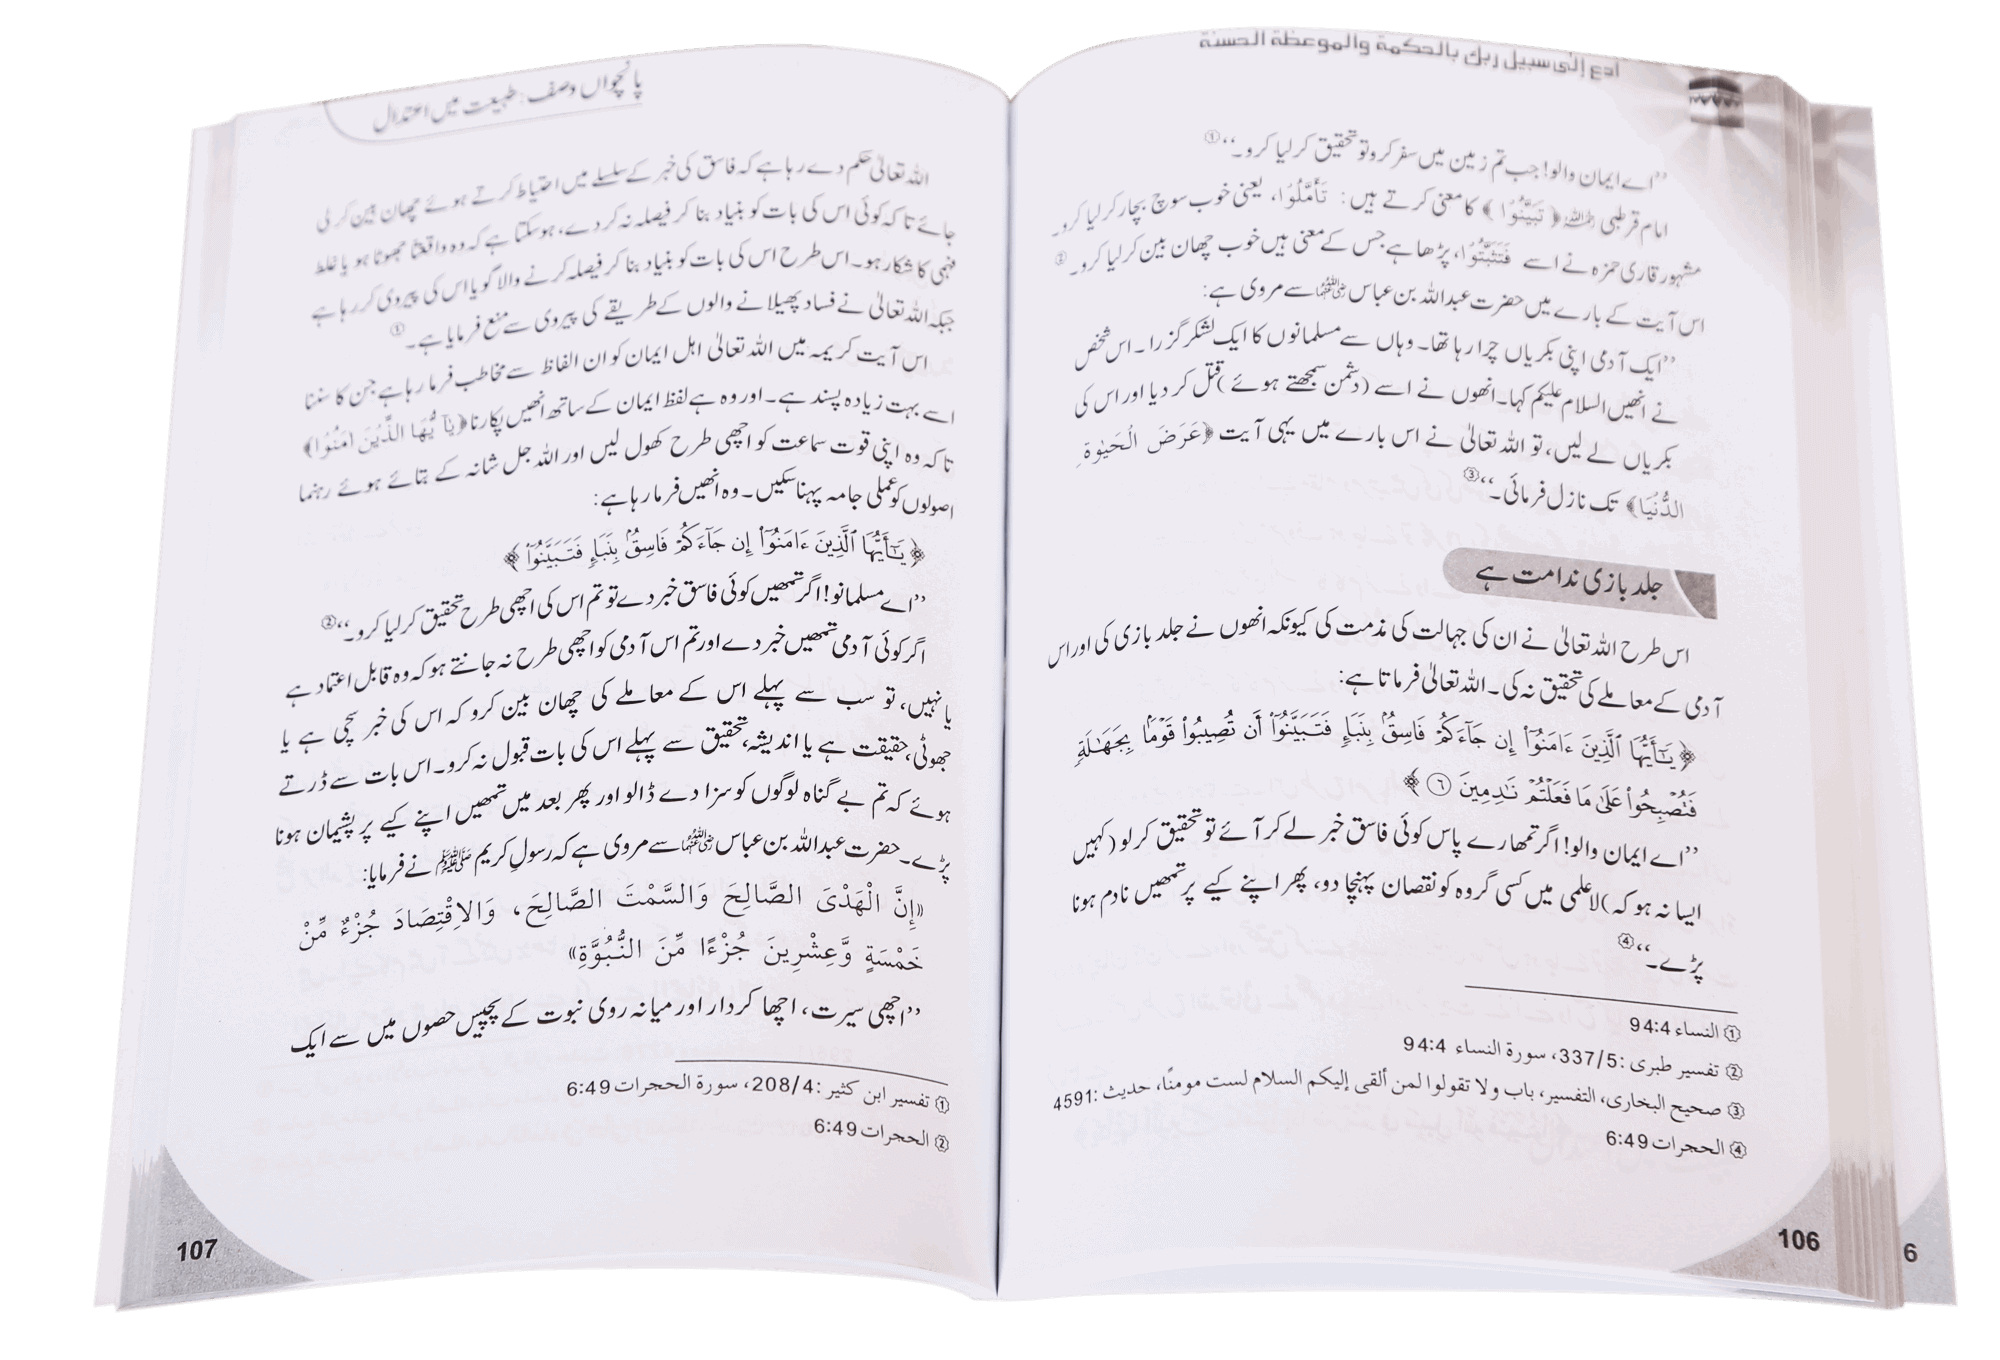 ادع إلى سبيل ربك بالحكمة والموعظة الحسنة
”اے ایمان والو! جب تم زمین میں سفر کرو تو تحقیق کر لیا کرو۔“①
امام قرطبی رحمہ اللہ ﴿تَبَيَّنُوْا﴾ کا معنی کرتے ہیں: تَأَمَّلُوْا، یعنی خوب سوچ بچار کر لیا کرو۔
مشہور قاری حمزہ نے اسے فَتَثَبَّتُوْا، پڑھا ہے جس کے معنی ہیں خوب چھان بین کر لیا کرو۔②
اس آیت کے بارے میں حضرت عبداللہ بن عباس رضی اللہ عنہما سے مروی ہے:
”ایک آدمی اپنی بکریاں چرا رہا تھا۔ وہاں سے مسلمانوں کا ایک لشکر گزرا۔ اس شخص
نے انھیں السلام علیکم کہا۔ انھوں نے اسے (دشمن سمجھتے ہوئے) قتل کر دیا اور اس کی
بکریاں لے لیں، تو اللہ تعالیٰ نے اس بارے میں یہی آیت ﴿عَرَضَ الْحَيٰوةِ
الدُّنْيَا﴾ تک نازل فرمائی۔“③
جلد بازی ندامت ہے
اس طرح اللہ تعالیٰ نے ان کی جہالت کی مذمت کی کیونکہ انھوں نے جلد بازی کی اور اس
آدمی کے معاملے کی تحقیق نہ کی۔ اللہ تعالیٰ فرماتا ہے:
﴿يَـٰٓأَيُّهَا ٱلَّذِينَ ءَامَنُوٓا۟ إِن جَآءَكُمْ فَاسِقٌۢ بِنَبَإٍ فَتَبَيَّنُوٓا۟ أَن تُصِيبُوا۟ قَوْمًۢا بِجَهَـٰلَةٍ
فَتُصْبِحُوا۟ عَلَىٰ مَا فَعَلْتُمْ نَـٰدِمِينَ ٦﴾
”اے ایمان والو! اگر تمھارے پاس کوئی فاسق خبر لے کر آئے تو تحقیق کر لو (کہیں
ایسا نہ ہو کہ) لاعلمی میں کسی گروہ کو نقصان پہنچا دو، پھر اپنے کیے پر تمھیں نادم ہونا
پڑے۔“④
① النساء 94:4
② تفسیر طبری: 337/5، سورة النساء 94:4
③ صحيح البخاری، التفسیر، باب ولا تقولوا لمن ألقى إليكم السلام لست مومنًا، حدیث: 4591
④ الحجرات 6:49
106
6
پانچواں وصف: طبیعت میں اعتدال
اللہ تعالیٰ حکم دے رہا ہے کہ فاسق کی خبر کے سلسلے میں احتیاط کرتے ہوئے چھان بین کر لی
جائے تاکہ کوئی اس کی بات کو بنیاد بنا کر فیصلہ نہ کر دے، ہو سکتا ہے کہ وہ واقعتًا جھوٹا ہو یا غلط
فہمی کا شکار ہو۔ اس طرح اس کی بات کو بنیاد بنا کر فیصلہ کرنے والا گویا اس کی پیروی کر رہا ہے
جبکہ اللہ تعالیٰ نے فساد پھیلانے والوں کے طریقے کی پیروی سے منع فرمایا ہے۔①
اس آیت کریمہ میں اللہ تعالیٰ اہل ایمان کو ان الفاظ سے مخاطب فرما رہا ہے جن کا سننا
اسے بہت زیادہ پسند ہے۔ اور وہ ہے لفظ ایمان کے ساتھ انھیں پکارنا ﴿يٰٓاَيُّهَا الَّذِيْنَ اٰمَنُوْا﴾
تاکہ وہ اپنی قوت سماعت کو اچھی طرح کھول لیں اور اللہ جل شانہ کے بتائے ہوئے رہنما
اصولوں کو عملی جامہ پہنا سکیں۔ وہ انھیں فرما رہا ہے:
﴿يَـٰٓأَيُّهَا ٱلَّذِينَ ءَامَنُوٓا۟ إِن جَآءَكُمْ فَاسِقٌۢ بِنَبَإٍ فَتَبَيَّنُوٓا۟﴾
”اے مسلمانو! اگر تمھیں کوئی فاسق خبر دے تو تم اس کی اچھی طرح تحقیق کر لیا کرو۔“②
اگر کوئی آدمی تمھیں خبر دے اور تم اس آدمی کو اچھی طرح نہ جانتے ہو کہ وہ قابل اعتماد ہے
یا نہیں، تو سب سے پہلے اس کے معاملے کی چھان بین کرو کہ اس کی خبر سچی ہے یا
جھوٹی، حقیقت ہے یا اندیشہ، تحقیق سے پہلے اس کی بات قبول نہ کرو۔ اس بات سے ڈرتے
ہوئے کہ تم بے گناہ لوگوں کو سزا دے ڈالو اور پھر بعد میں تمھیں اپنے کیے پر پشیمان ہونا
پڑے۔ حضرت عبداللہ بن عباس رضی اللہ عنہما سے مروی ہے کہ رسولِ کریم ﷺ نے فرمایا:
«إِنَّ الْهَدْىَ الصَّالِحَ وَالسَّمْتَ الصَّالِحَ، وَالِاقْتِصَادَ جُزْءٌ مِّنْ
خَمْسَةٍ وَّعِشْرِينَ جُزْءًا مِّنَ النُّبُوَّةِ»
”اچھی سیرت، اچھا کردار اور میانہ روی نبوت کے پچیس حصوں میں سے ایک
① تفسیر ابن کثیر: 208/4، سورة الحجرات 6:49
② الحجرات 6:49
107